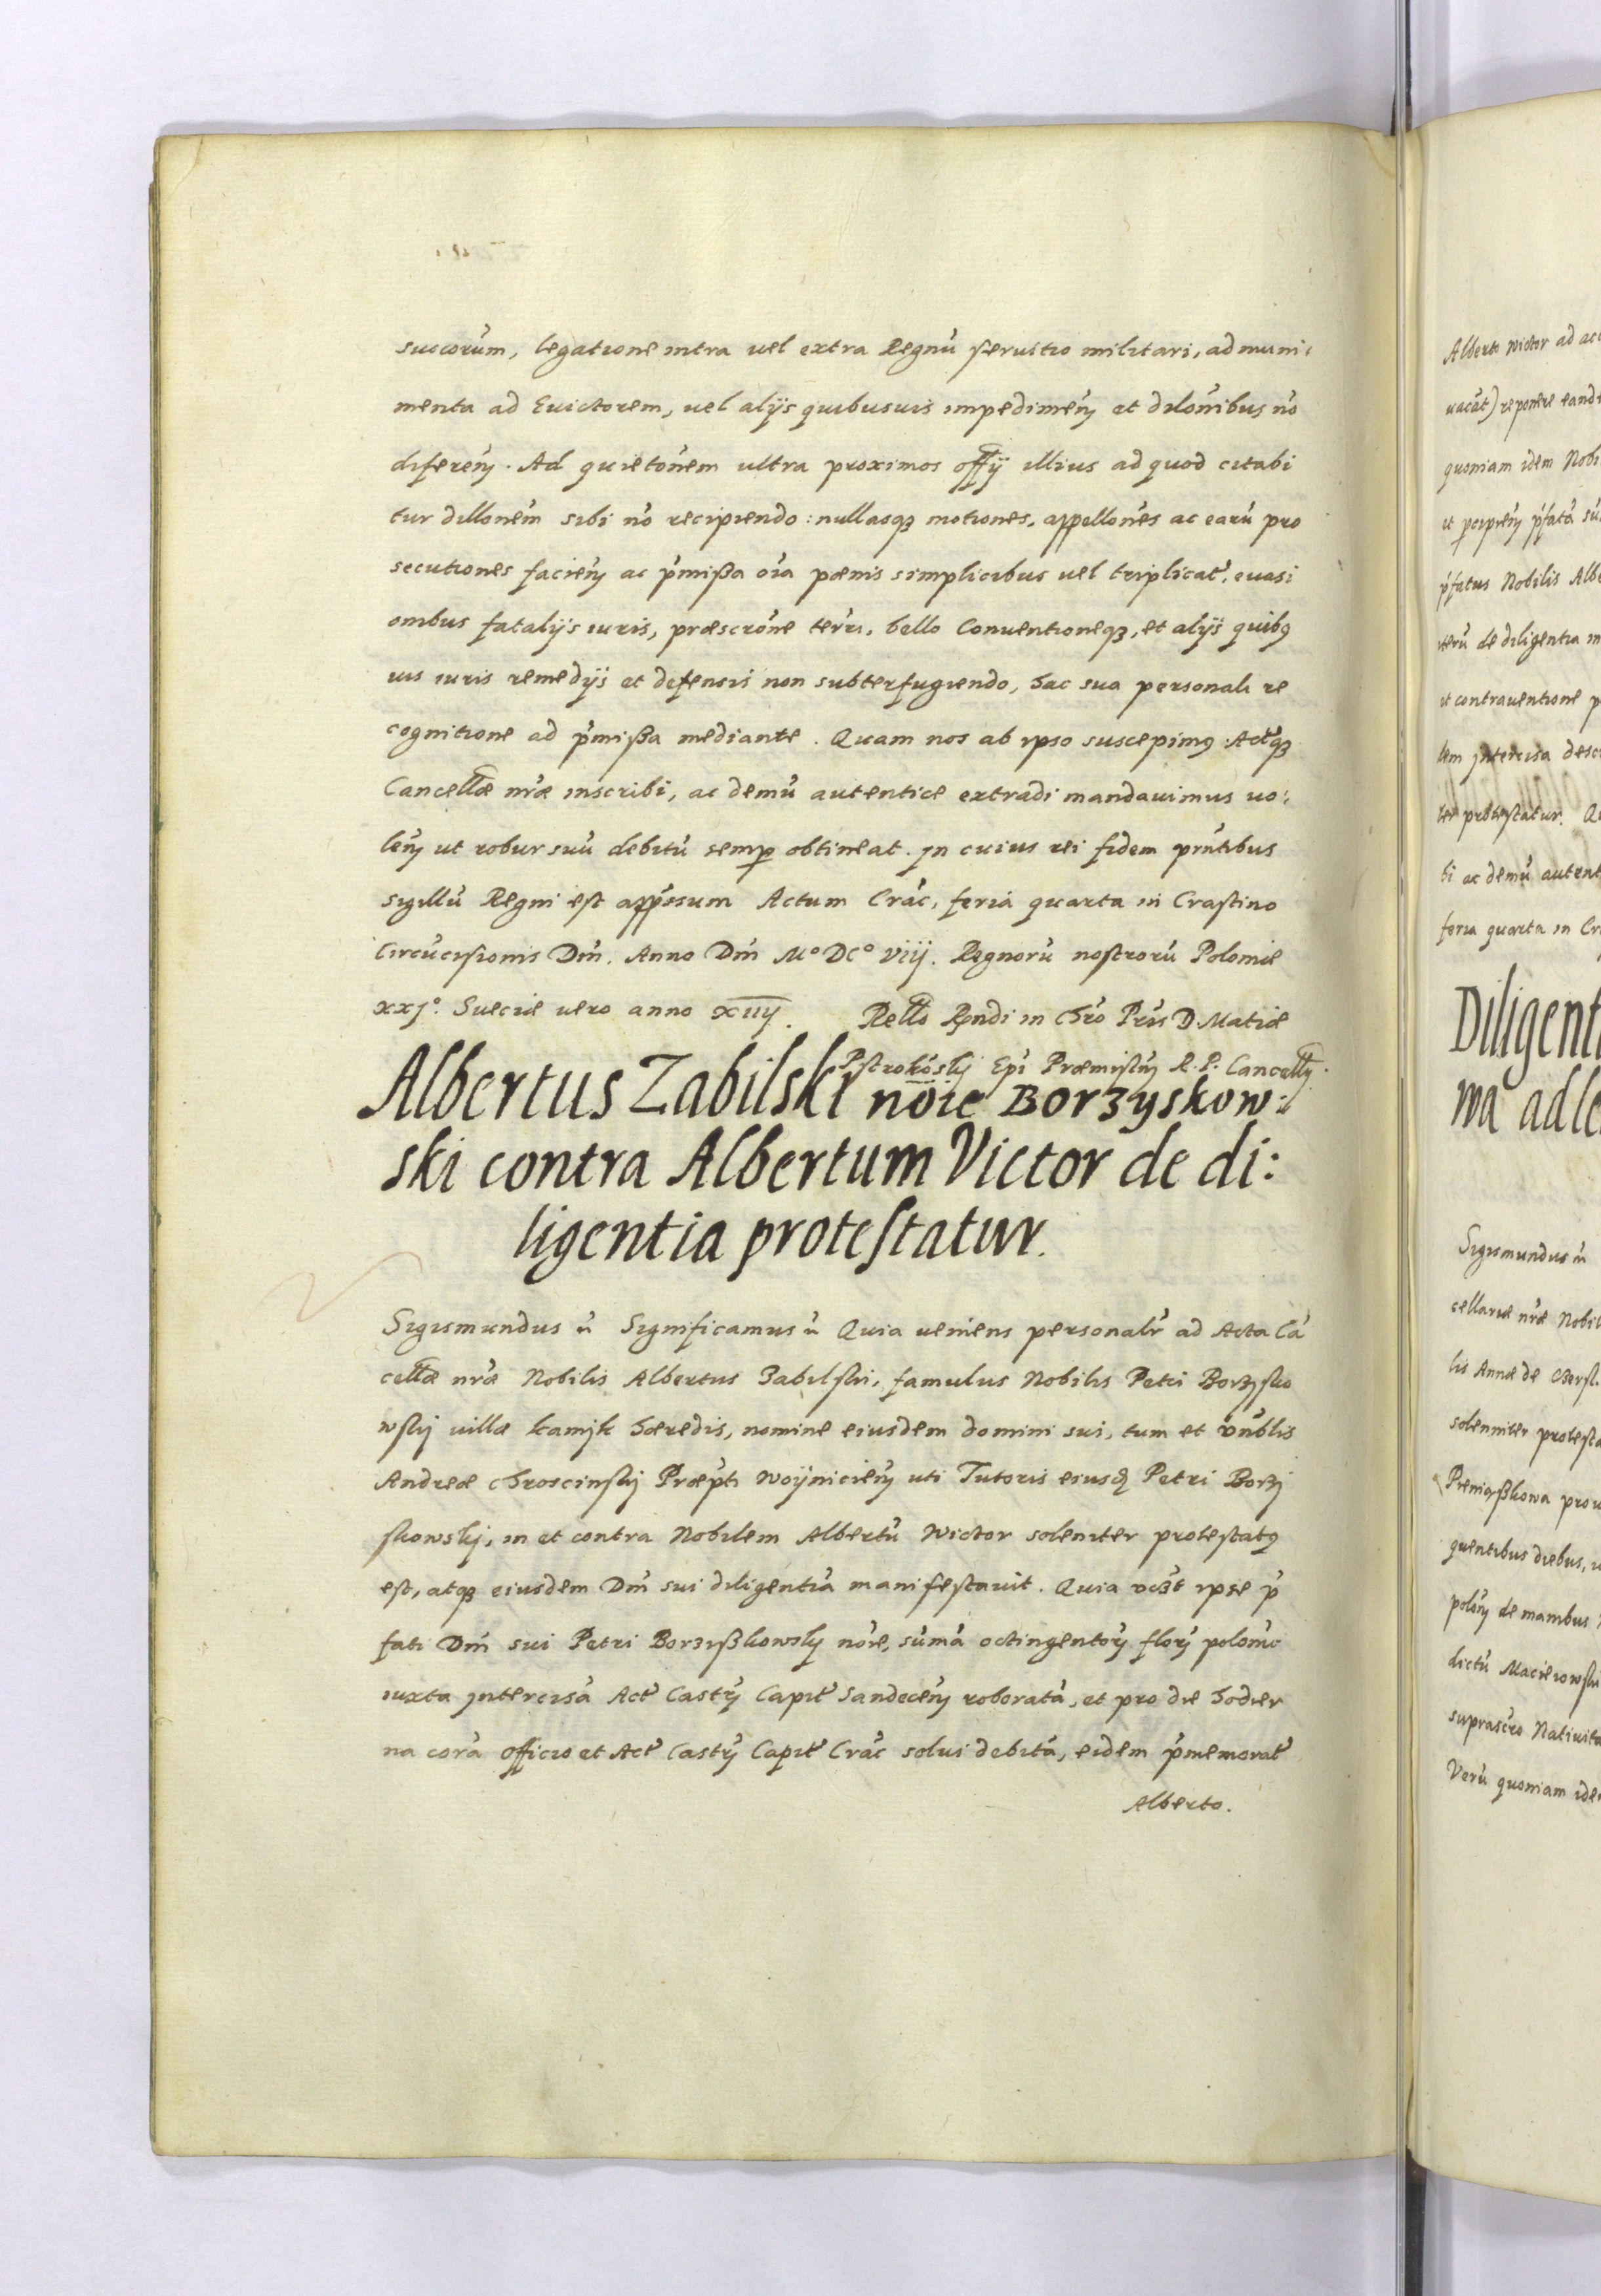 suocorum, legatione intra uel extra Regnu seruitio militari, ad muni
menta ad Euictorem, uel alijs quibusuis impedimen et dilonibus no
diferen. Ad quietonem ultra proximos offij illius ad quod citabi
tur dillonem sibi no recipiendo: nullasq motiones, appellones ac earu pro
secutiones facien ac pmißa oia pœnis simplicibus uel triplicat, euasi
onibus fatalijs iuris, præscrone terri, bello Conuentioneq, et alijs quibq
uis iuris remedijs et defensis non subterfugiendo, hac sua personali re
cognitione ad pmißa mediante. Quam nos ab ipso suscepimq Actisq
Cancellæ nræ inscribi, ac demu autentice extradi mandauimus uo:
len ut robur suu debitu semp obtineat. In cuius rei fidem pntibus
sigillu Regni est appssum Actum Crac, feria quarta in Crastino
Circucisionis Dni. Anno Dni Mo DCo viij. Regnoru nostroru Poloniæ
xxjo. Sueciæ uero anno xiiij. Rello Rndi in Chro Pris D. Matiæ
Pstrokoskj Epi Præmislin R. P. Cancellij.
Albertus Zabilski noie Borzyskow:
ski contra Albertum Victor de di:
ligentia protestatur.
Sigismundus Significamus Quia ueniens personalr ad Acta Ca
cellæ nræ Nobilis Albertus Zabilski, famulus Nobilis Petri Borzysko
wskij uillæ kamjk hæredis, nomine eiusdem domini sui, tum et vnblis
Andreæ Chroscinskj Præpti Woijnicien uti Tutoris eiusd Petri Borzj
skowskj, in et contra Nobilem Albertu Wictor soleniter protestatq
est, atq eiusdem Dni sui diligentia manifestauit. Quia vczt ipse p
fati Dni sui Petri Borzißkowskj noie, suma octingentor flor polonic
iuxta intercisa Act Castr Capit Sandecen roborata, et pro die hodier
na cora officio et Act Castr Capit Crac solui debita, eidem pmemorat
Alberto.
Alberto Wictor ad ac
uacat) reponere eand
quoniam idem Nobi
et pcipien pfata su
pfatus Nobilis Albe
iteru de diligentia in
et contrauentione p
lem intercisa desc
ter protestatur. Q
bi ac demu autent
feria quarta in Cr
Diligent
wa ad le
Sigismundus
cellariæ nræ Nobil
lis Annæ de
solenniter protesta
Pienioßkowa pro
quentibus diebus,
polon de manibus
dictu Macieiowski
suprascro Natiuita
Veru quoniam ide